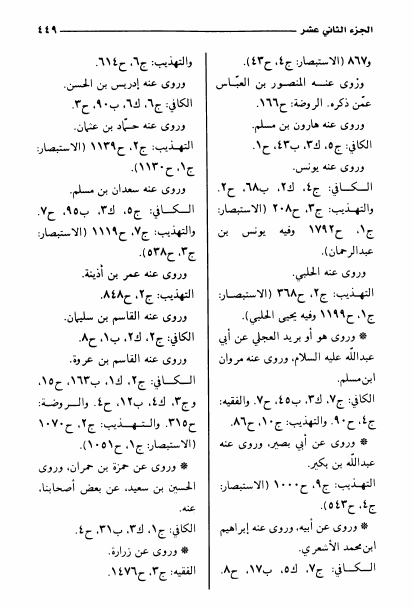 الجزء الثاني عشر
٤٤٩
و٨٦٧ (الاستبصار: ج٤، ح٤٣).
وروى عنه المنصور بن العبّاس
عمّن ذكره. الروضة: ح١٦٦.
وروى عنه هارون بن مسلم.
الكافي: ج٥، ك٣، ب٤٣، ح١.
وروى عنه يونس.
الكافي: ج٤، ك٢، ب٦٨، ح٢.
والتهذيب: ج٣، ح٢٠٨ (الاستبصار:
ج١، ح١٧٩٢ وفيه يونس بن
عبدالرحمان).
وروى عنه الحلبي.
التهذيب: ج٢، ح٣٦٨ (الاستبصار:
ج١، ح١١٩٩ وفيه يحيى الحلبي).
* وروى هو أو بريد العجلي عن أبي
عبدالله عليه السلام، وروى عنه مروان
ابن مسلم.
الكافي: ج٧، ك٣، ب٤٥، ح٧. والفقيه:
ج٤، ح٩٠. والتهذيب: ج١٠، ح٨٦.
* وروى عن أبي بصير، وروى عنه
عبدالله بن بكير.
التهذيب: ج٩، ح١٠٠٠ (الاستبصار:
ج٤، ح٥٤٣).
* وروى عن أبيه، وروى عنه إبراهيم
ابن محمد الأشعري.
الكافي: ج٧، ك٥، ب١٧، ح٨.
والتهذيب: ج٦، ح٦١٤.
وروى عنه إدريس بن الحسن.
الكافي: ج٦، ك٦، ب٩٠، ح٣.
وروى عنه حمّاد بن عثمان.
التهذيب: ج٢، ح١١٣٩ (الاستبصار:
ج١، ح١١٣٠).
وروى عنه سعدان بن مسلم.
الكافي: ج٥، ك٣، ب٩٥، ح٧.
والتهذيب: ج٧، ح١١١٩ (الاستبصار:
ج٣، ح٥٣٨).
وروى عنه عمر بن أذينة.
التهذيب: ج٢، ح٨٤٨.
وروى عنه القاسم بن سليمان.
الكافي: ج٢، ك٢، ب١، ح٨.
وروى عنه القاسم بن عروة.
الكافي: ج٢، ك١، ب١٦٣، ح١٥،
وج٣، ك٤، ب١٢، ح٤. والروضة:
ح٣١٥. والتهذيب: ج٢، ح١٠٧٠
(الاستبصار: ج١، ح١٠٥١).
* وروى عن حمزة بن حمران، وروى
الحسين بن سعيد، عن بعض أصحابنا،
عنه.
الكافي: ج١، ك٣، ب٣١، ح٤.
* وروى عن زرارة.
الفقيه: ج٣، ح١٤٧٦.